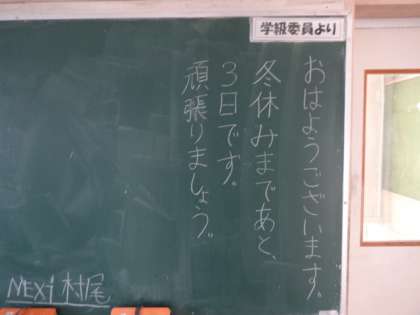 学級委員より
おはようございます。
冬休みまであと、
3日です。
頑張りましょう。
NEXT 村尾